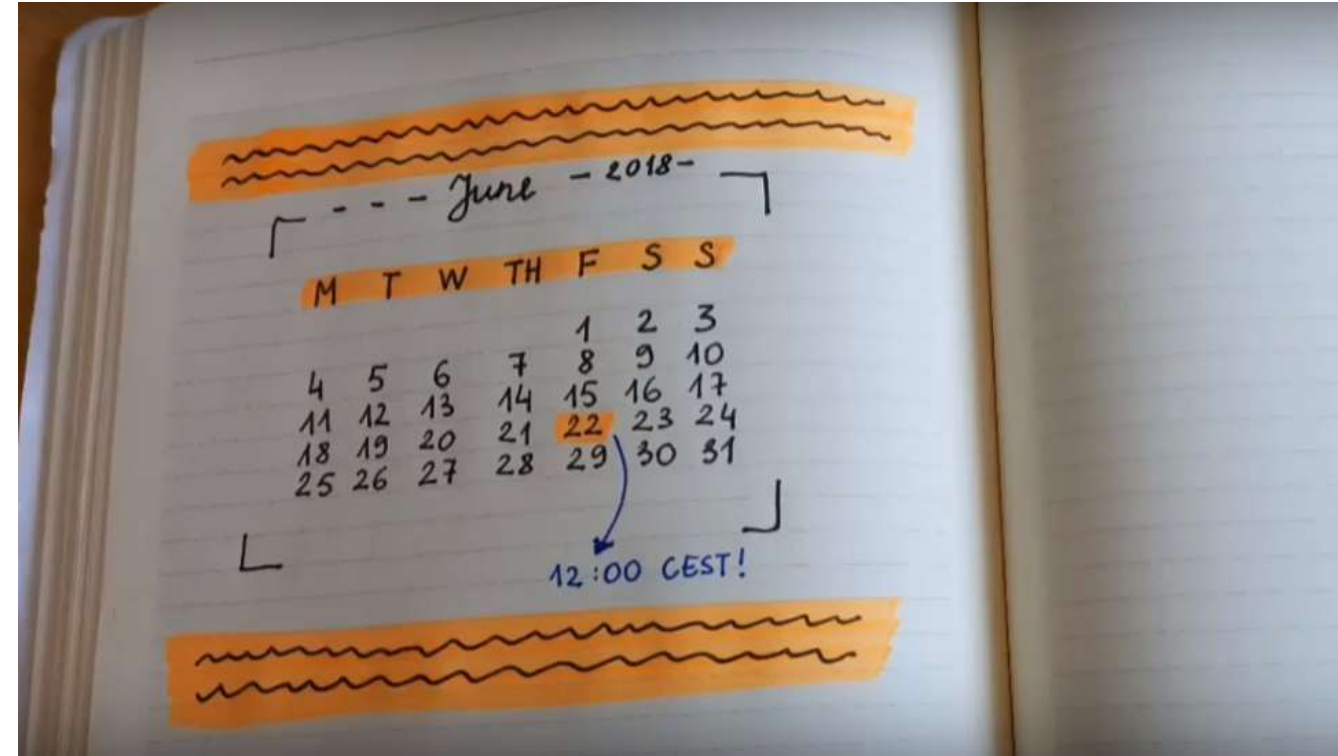 - - - June - 2018 -
M T W TH F S S
1 2 3
4 5 6 7 8 9 10
11 12 13 14 15 16 17
18 19 20 21 22 23 24
25 26 27 28 29 30 31
12:00 CEST!